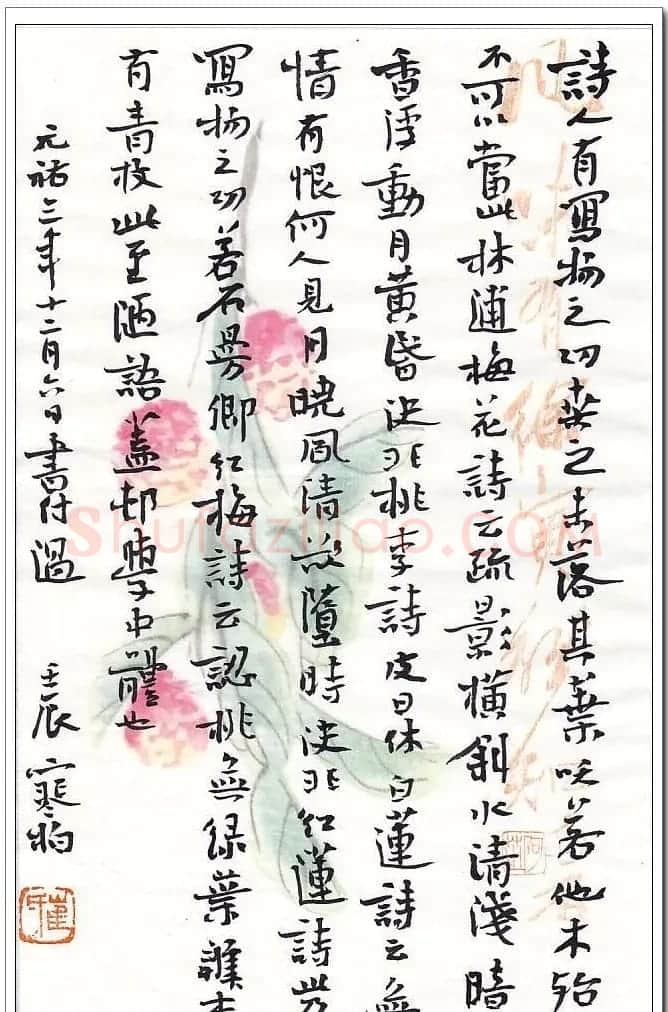 詩人有寫物之功桑之未落其葉沃若他木殆
不可以當此林逋梅花詩云疏影橫斜水清淺暗
香浮動月黃昏決非桃李詩皮日休白蓮詩云無
情有恨何人見月曉風清欲墮時決非紅蓮詩此乃
寫物之功若石曼卿紅梅詩云認桃無綠葉辨杏
有青枝此至陋語蓋邨學中體也
元祐三年十二月六日書付過 壬辰 寒柏
Shufaziliao.COM